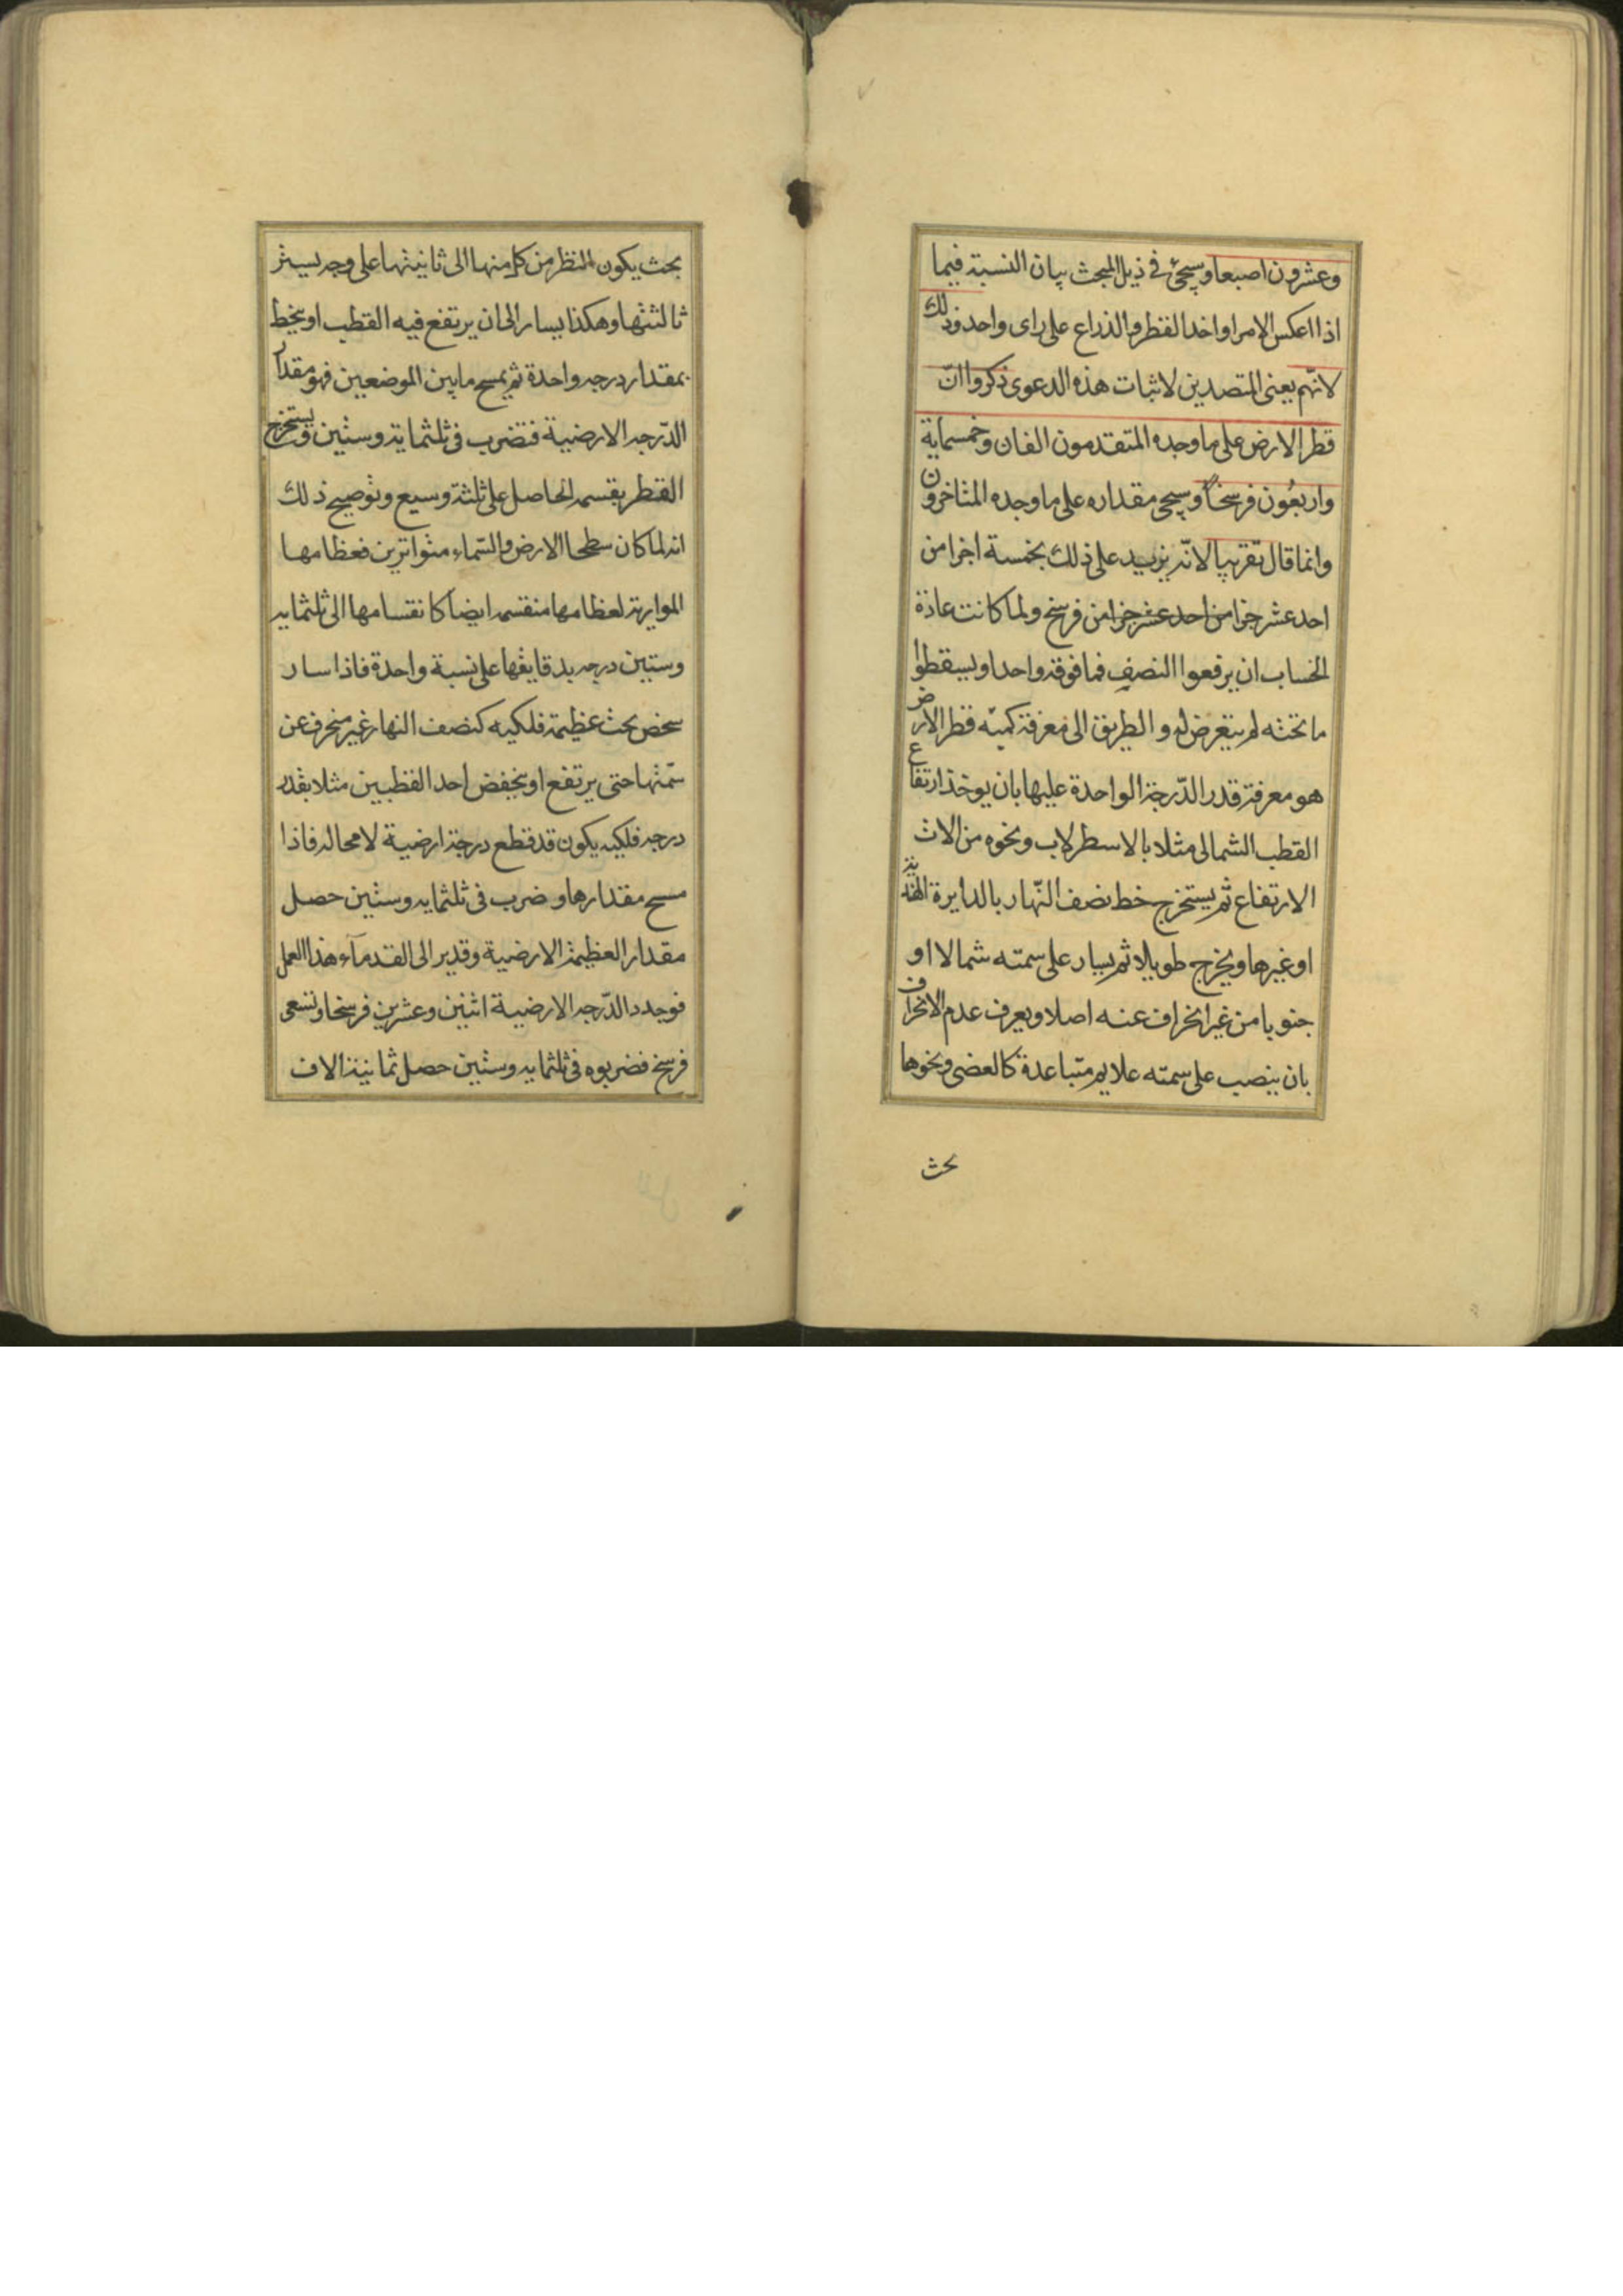 وعشرون اصبعا وسيجئ في ذيل المبحث بيان النسبة فيما
اذا اعكس الامر او اخذ القطر والذراع على راى واحد وذلك
لانّهم يعنى المتصدين لاثبات هذه الدعوى ذكروا انّ
قطر الارض على ما وجده المتقدمون الفان وخمسماية
واربعُون فرسخاً وسيجى مقداره على ما وجده المتاخرون
وانما قال تقريبا لانّه يزيد على ذلك بخمسة اجزا من
احد عشر جزا من احد عشر جزا من فرسخ ولما كانت عادة
الحساب ان يرفعوا النصف فما فوقه واحدا ويسقطوا
ما تحته لم يتعرض له و الطريق الى معرفة كميّة قطر الارض
هو معرفة قدر الدّرجة الواحدة عليها بان يوخذ ارتفاع
القطب الشمالى مثلا بالاسطرلاب ونحوه من الات
الارتفاع ثم يستخرج خط نصف النّهار بالدايرة الهندية
او غيرها ويخرج طويلا ثم يسار على سمته شمالا او
جنوبا من غير انحراف عنه اصلا ويعرف عدم الانحراف
بان ينصب على سمته علايم متباعدة كالعضى ونحوها
بحث
بحث يكون المنظر من كل منها الى ثانيتها على وجه يستر
ثالثتها وهكذا يسار الى ان يرتفع فيه القطب او ينحط
بمقدار درجه واحدة ثم يمسح ما بين الموضعين فهو مقدار
الدّرجه الارضية فتضرب فى ثلثماية وستين ويستخرج
القطر بقسمه الحاصل على ثلثة وسبع وتوضيح ذلك
انه لما كان سطحا الارض والسّماء متوازيين فعظامها
الموازية لعظامها منقسمه ايضا كانقسامها الى ثلثمايه
وستين درجه بدقايقها على نسبة واحدة فاذا سار
شخص تحت عظيمة فلكيه كنصف النهار غير منحرف عن
سمتها حتى يرتفع او ينخفض احد القطبين مثلا بقدر
درجه فلكيه يكون قد قطع درجة ارضية لا محاله فاذا
مسح مقدارها وضرب فى ثلثمايه وستين حصل
مقدار العظيمة الارضية وقدير الى القدمآء هذا العمل
فوجدد الدّرجه الارضية اثنين وعشرين فرسخا وتسعى
فرسخ فضربوه فى ثلثمايه وستين حصل ثمانية الاف